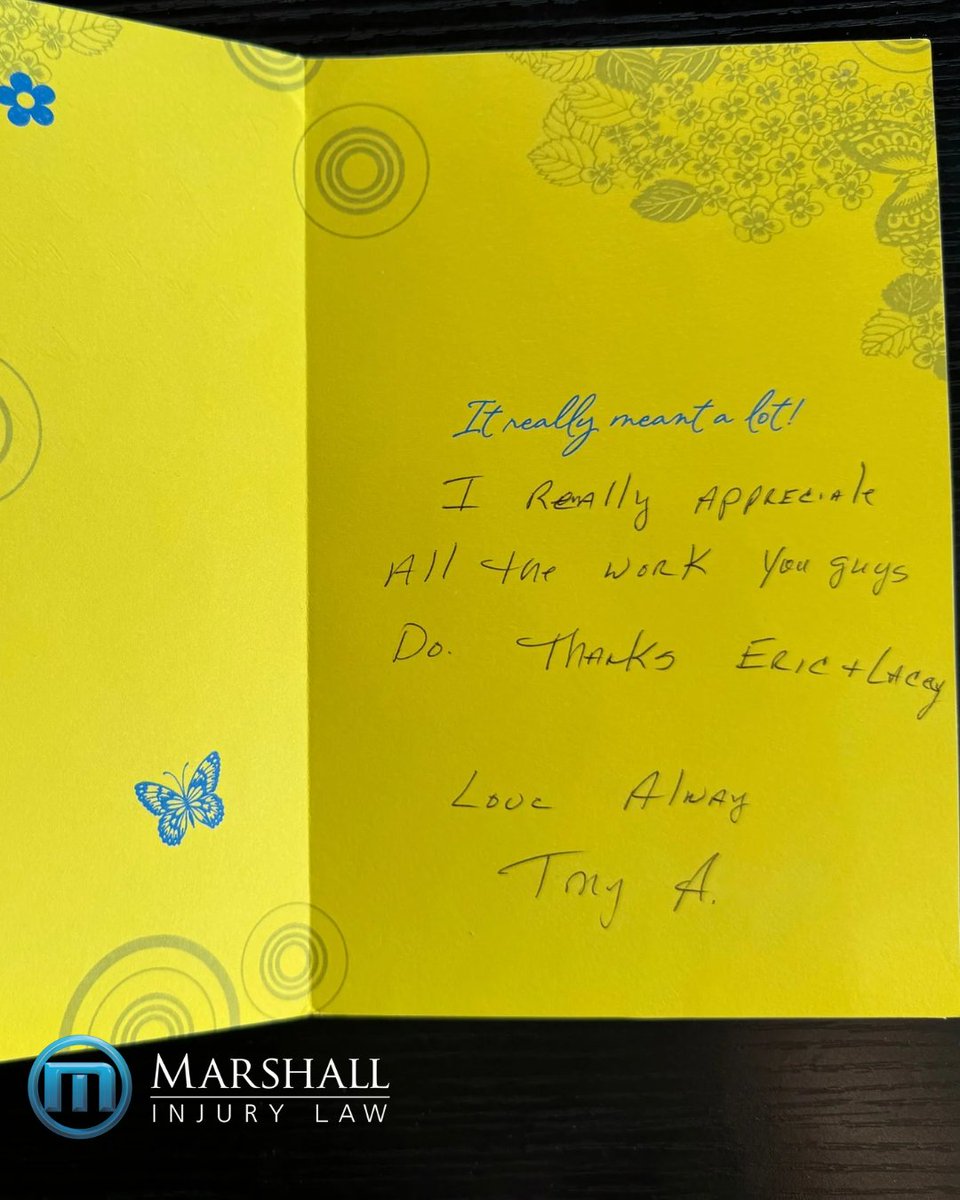 It really meant a lot!
I Really Appreciate
All the work you guys
Do. Thanks Eric + Lacey
Love Alway
Tony A.
MARSHALL
INJURY LAW